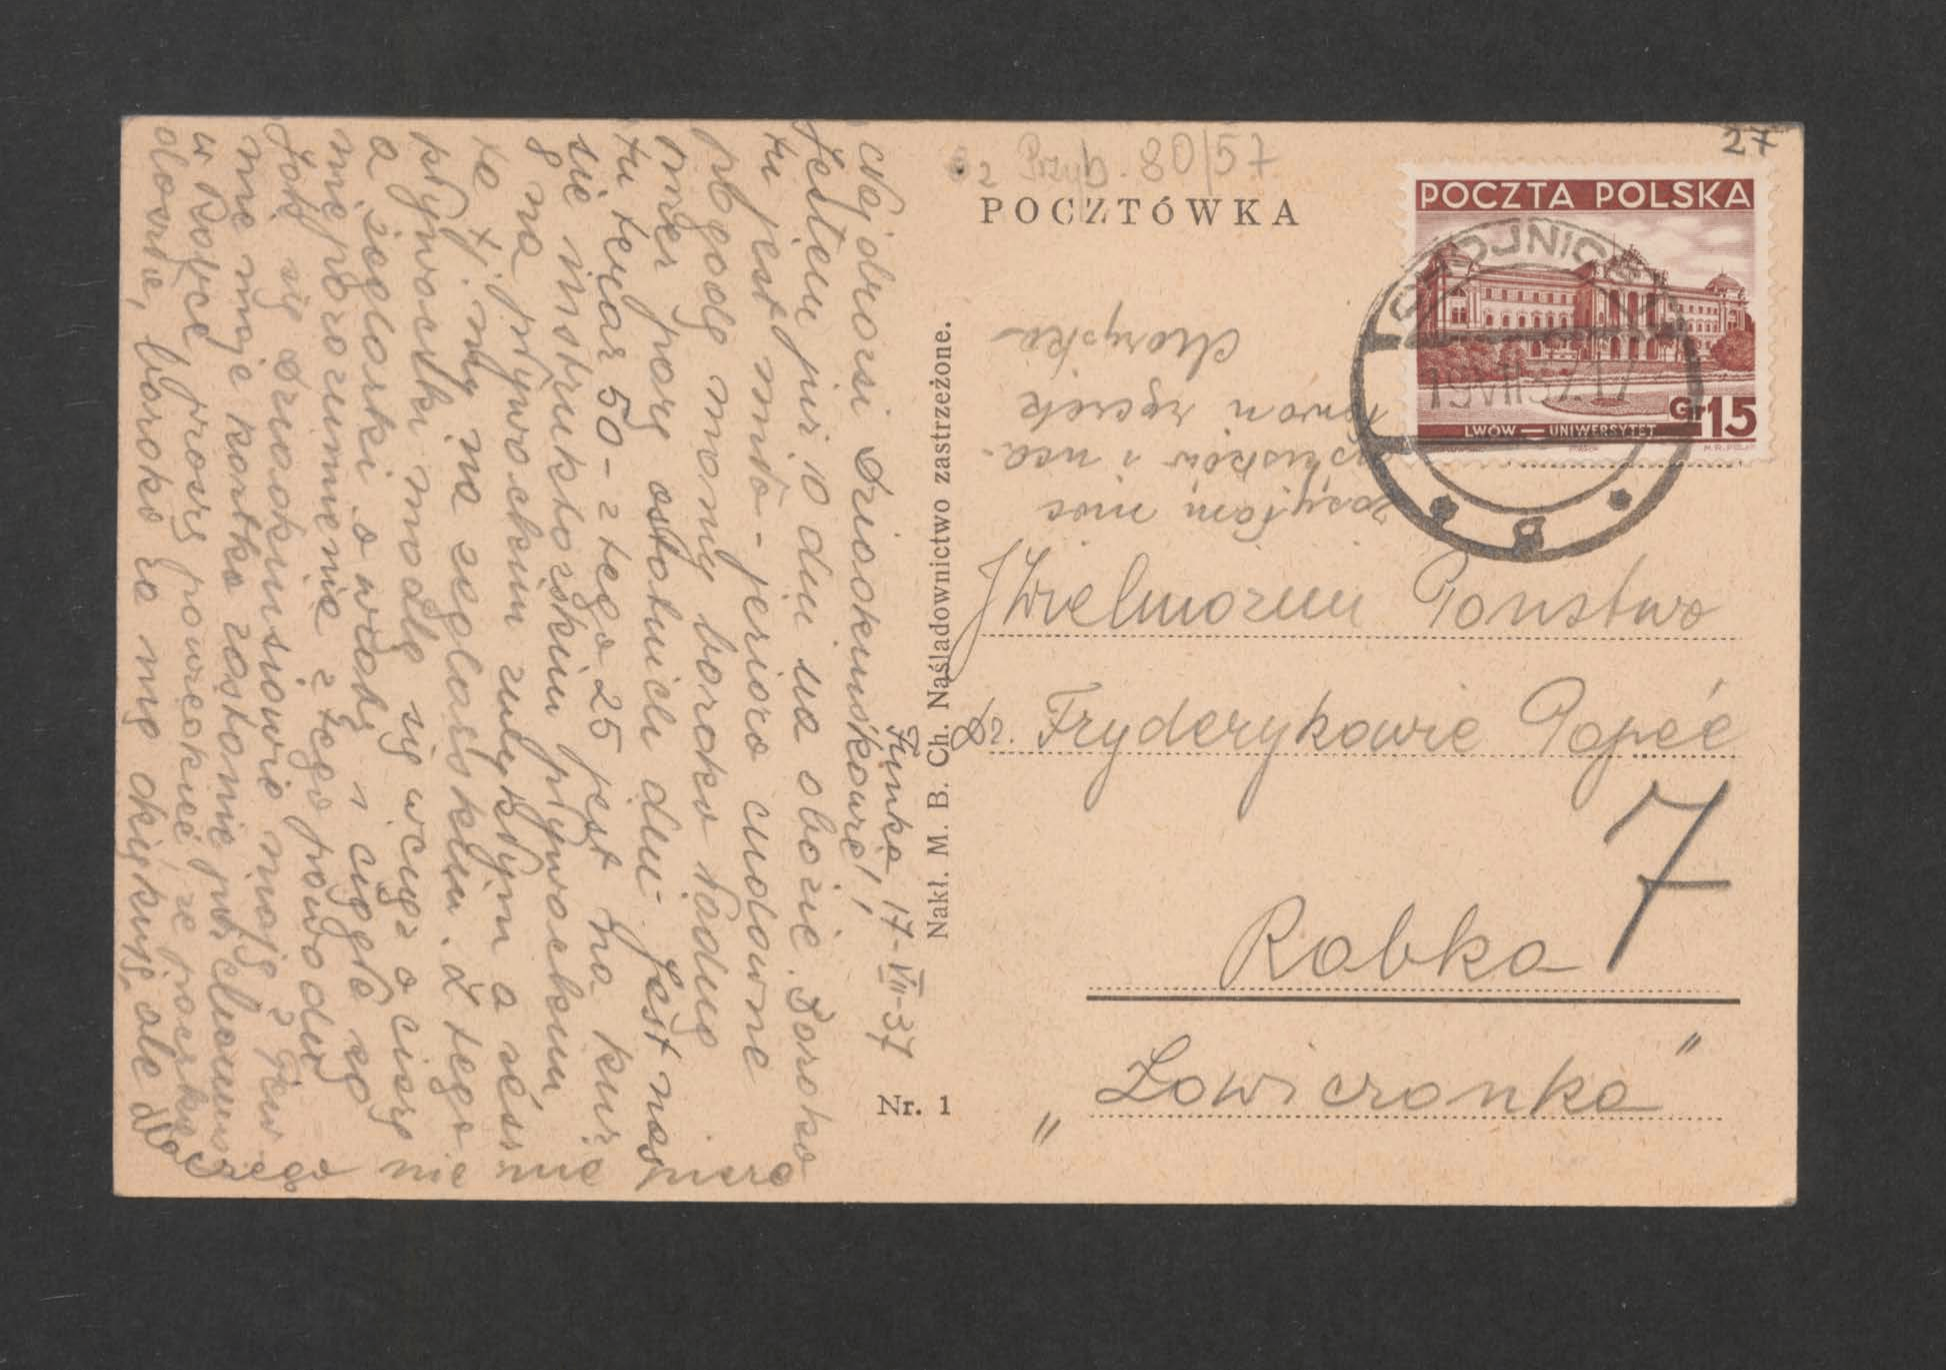 z Przyb. 80/57
27
POCZTÓWKA
POCZTA POLSKA
CHOJNICE
19 VII 37.17
Gr 15
LWÓW — UNIWERSYTET
g
JWielmożni Państwo
Dr. Fryderykowie Papeé
7
Rabka
„Łowiczanka"
Nakł. M. B. Ch. Naśladownictwo zastrzeżone.
Nr. 1
Funka 17-VII-37
Najdrożsi Dziadkuńkowie!,
Jestem już 10 dni na obozie. Bardzo
tu jest miło - jezioro cudowne
pogodę mamy bardzo ładną
prze
mer parę ostatnich dni. Jest nas
tu teraz 50 - z tego 25 jest na kursie
się instruktorskim pływackim
8 na pływackim zwykłym a reszta nie
to tj. my na żeglarskim. Z tego
pływaczki modlą się wciąż o ciszę
a żeglarki o wiatr i ciągłe są nie
nieporozumienia z tego powodu
Jak się Dziadkuńsiowie mają?
mnie moja kartka zostanie już
w Rabce proszę powiedzieć, że paczkę
dostałam, bardzo za nią dziękuję ale dlaczego
zasyłam moc
uścisków i uca-
łowań rączek
Maryśka